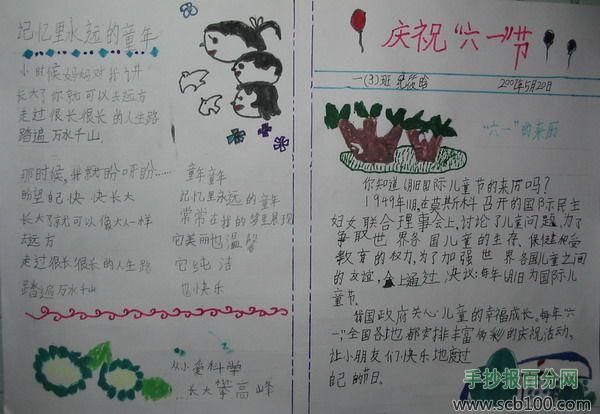 记忆里永远的童年
小时候妈妈对我讲
长大了你就可以去远方
走过很长很长的人生路
踏遍万水千山
那时候,我就盼呀盼……
盼望自己快快长大
长大了就可以像大人一样
去远方
走过很长很长的人生路
踏遍万水千山
童年童年
记忆里永远的童年
常常在我的梦里展现
它美丽也温馨
它纯洁
也快乐
从小爱科学
…长大攀高峰
庆祝“六一”节
一(3)班
2007年5月20日
“六一”的来历
你知道6月1日国际儿童节的来历吗?
1949年11月,在莫斯科召开的国际民主
妇女联合理事会上,讨论了儿童问题,为了
争取世界各国儿童的生存、保健和受
教育的权力,为了加强世界各国儿童之间
的友谊,会上通过决议:每年6月1日为国际儿
童节。
我国政府关心儿童的幸福成长。每年“六
一”,全国各地都安排丰富多彩的庆祝活动,
让小朋友们快乐地度过
自己的节日。
手抄报百分网
www.scb100.com